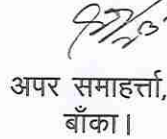 अपर समाहर्त्ता,
बाँका।